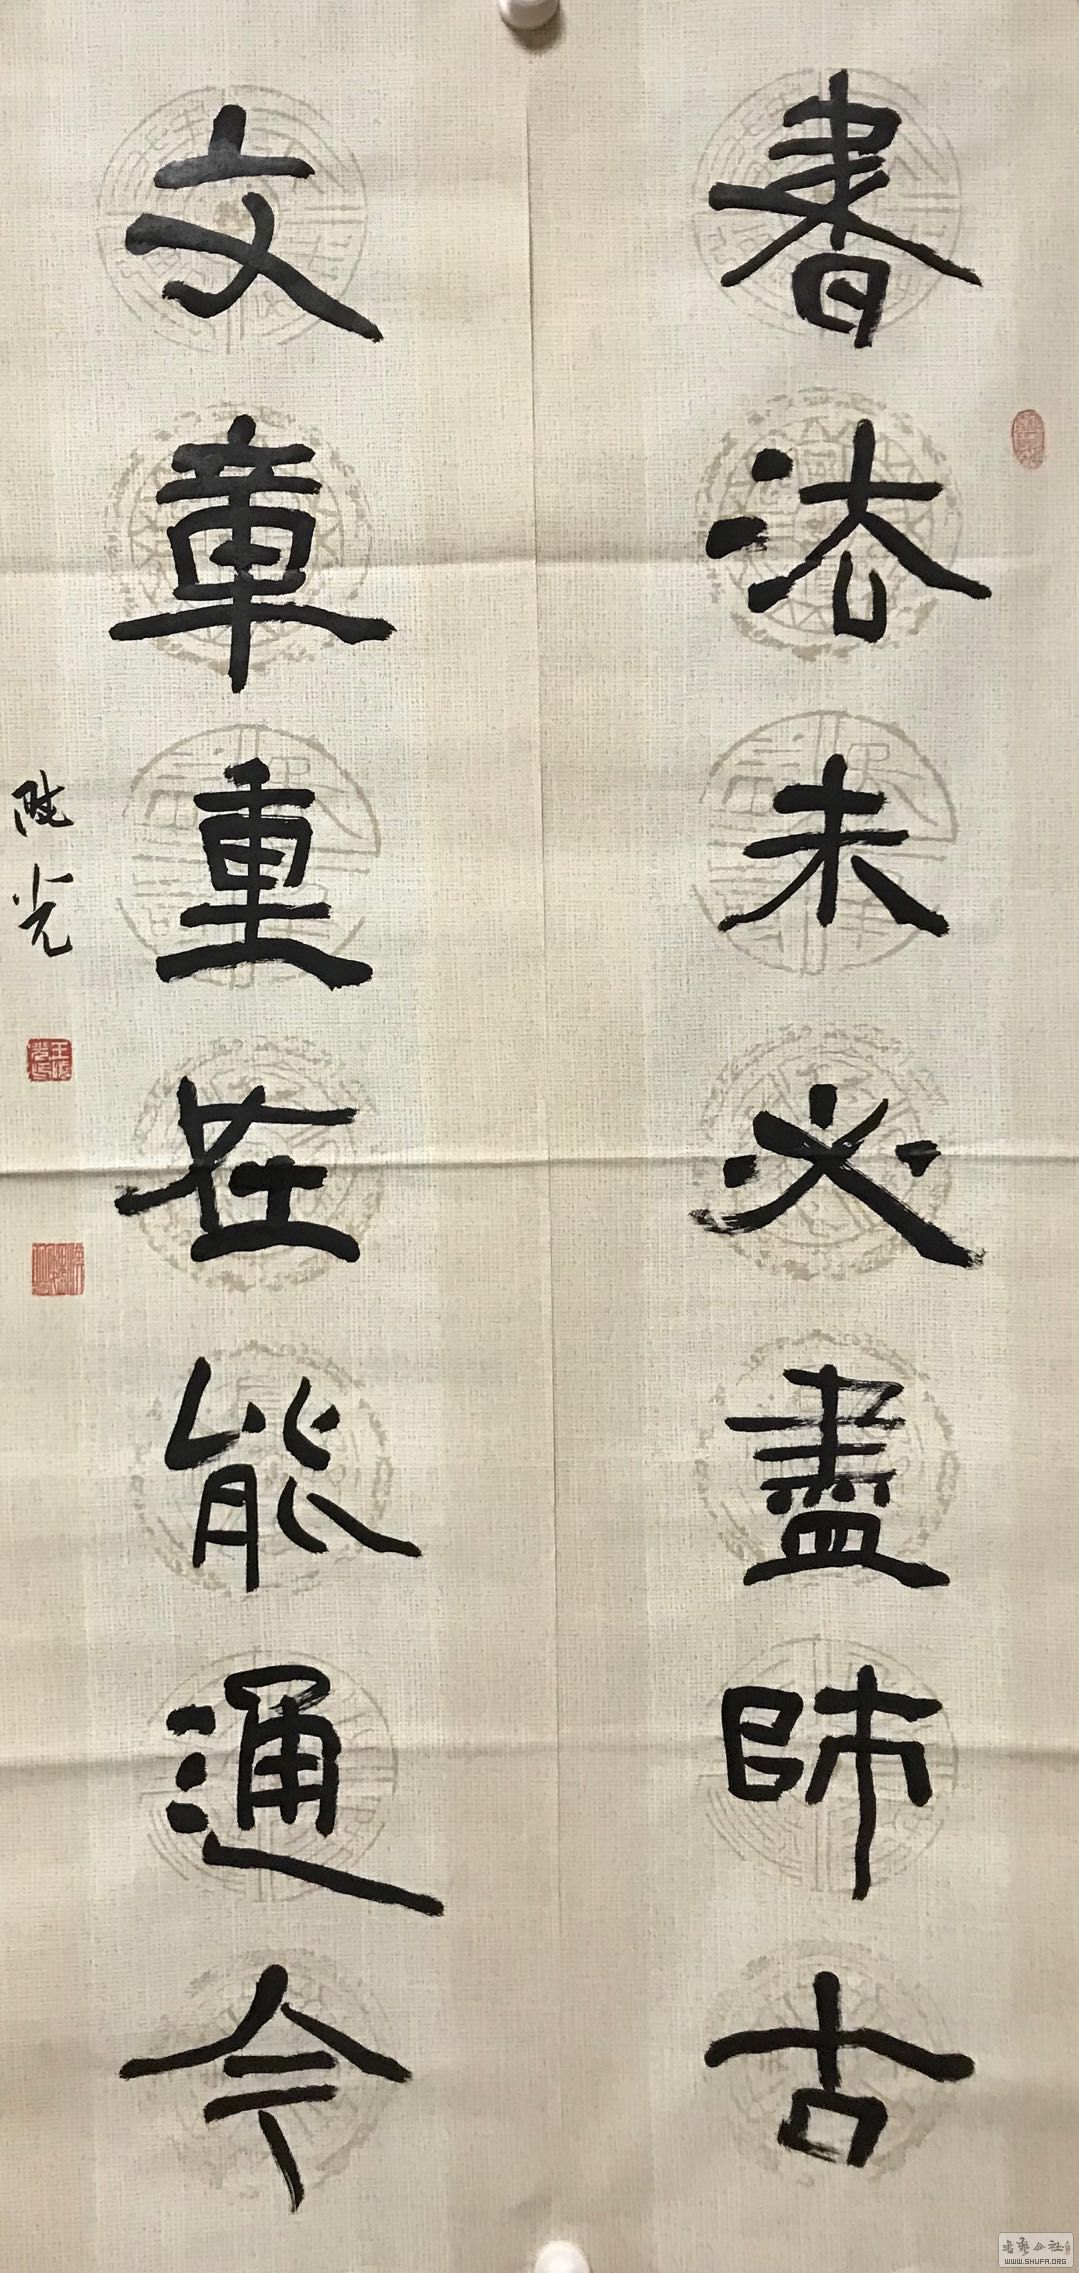 書法未必盡師古
文章重在能通今
光
WWW.SHUFA.ORG